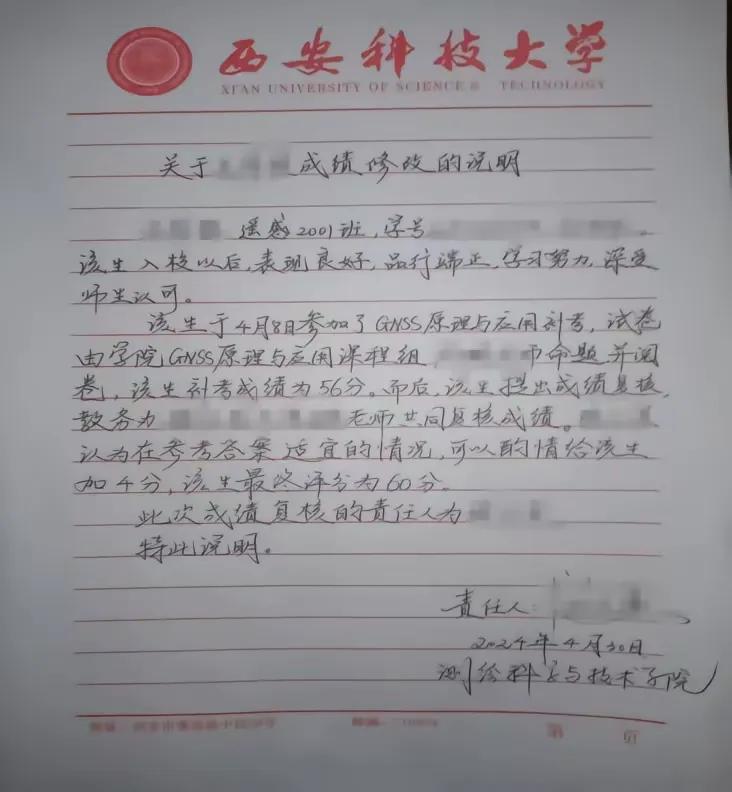 西安科技大学
XI'AN UNIVERSITY OF SCIENCE & TECHNOLOGY
关于 成绩修改的说明
遥感2001班，学号
该生入校以后，表现良好，品行端正，学习努力，深受
师生认可。
该生于4月8日参加了GNSS原理与应用补考，试卷
由学院GNSS原理与应用课程组 命题并阅
卷，该生补考成绩为56分。而后，该生提出成绩复核，
教务为 老师共同复核成绩。
认为在参考答案适宜的情况，可以酌情给该生
加4分，该生最终评分为60分。
此次成绩复核的责任人为
特此说明。
责任人：
2024年4月30日
测绘科学与技术学院
第 页